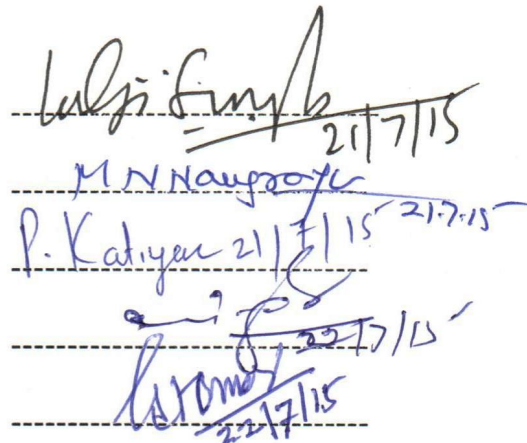 Lalji Singh
21/7/15
M N Naugraiya 21.7.15
P. Katiyar 21/7/15
22/7/15
22/7/15